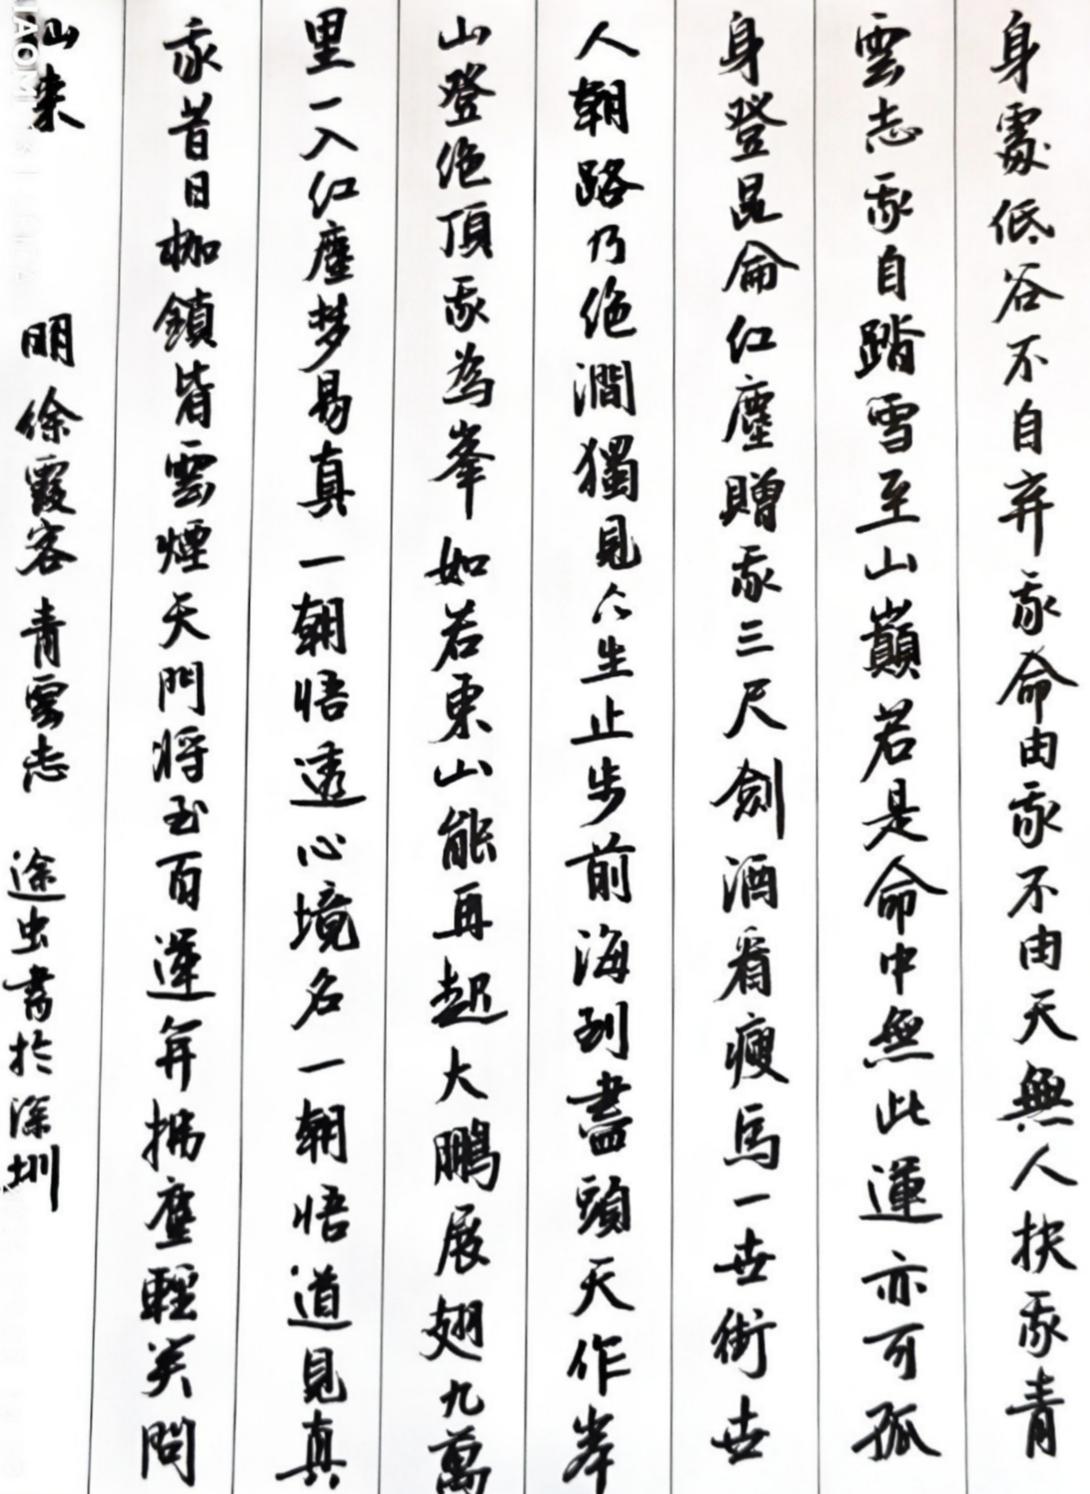 身處低谷不自弃我命由我不由天無人扶我青
雲志我自踏雪至山巔若是命中無此運亦可孤
身登昆侖红塵贈我三尺劍酒看瘦馬一世街世
人朝路乃绝澗獨見众生止步前海到盡頭天作岸
山登绝頂我為峯如若東山能再起大鵬展翅九萬
里一入红塵梦易真一朝悟透心境名一朝悟道見真
我昔日枷鎖皆雲煙天門將至百運年拂塵輕笑問
仙来 明 徐霞客 青雲志 途虫書於深圳